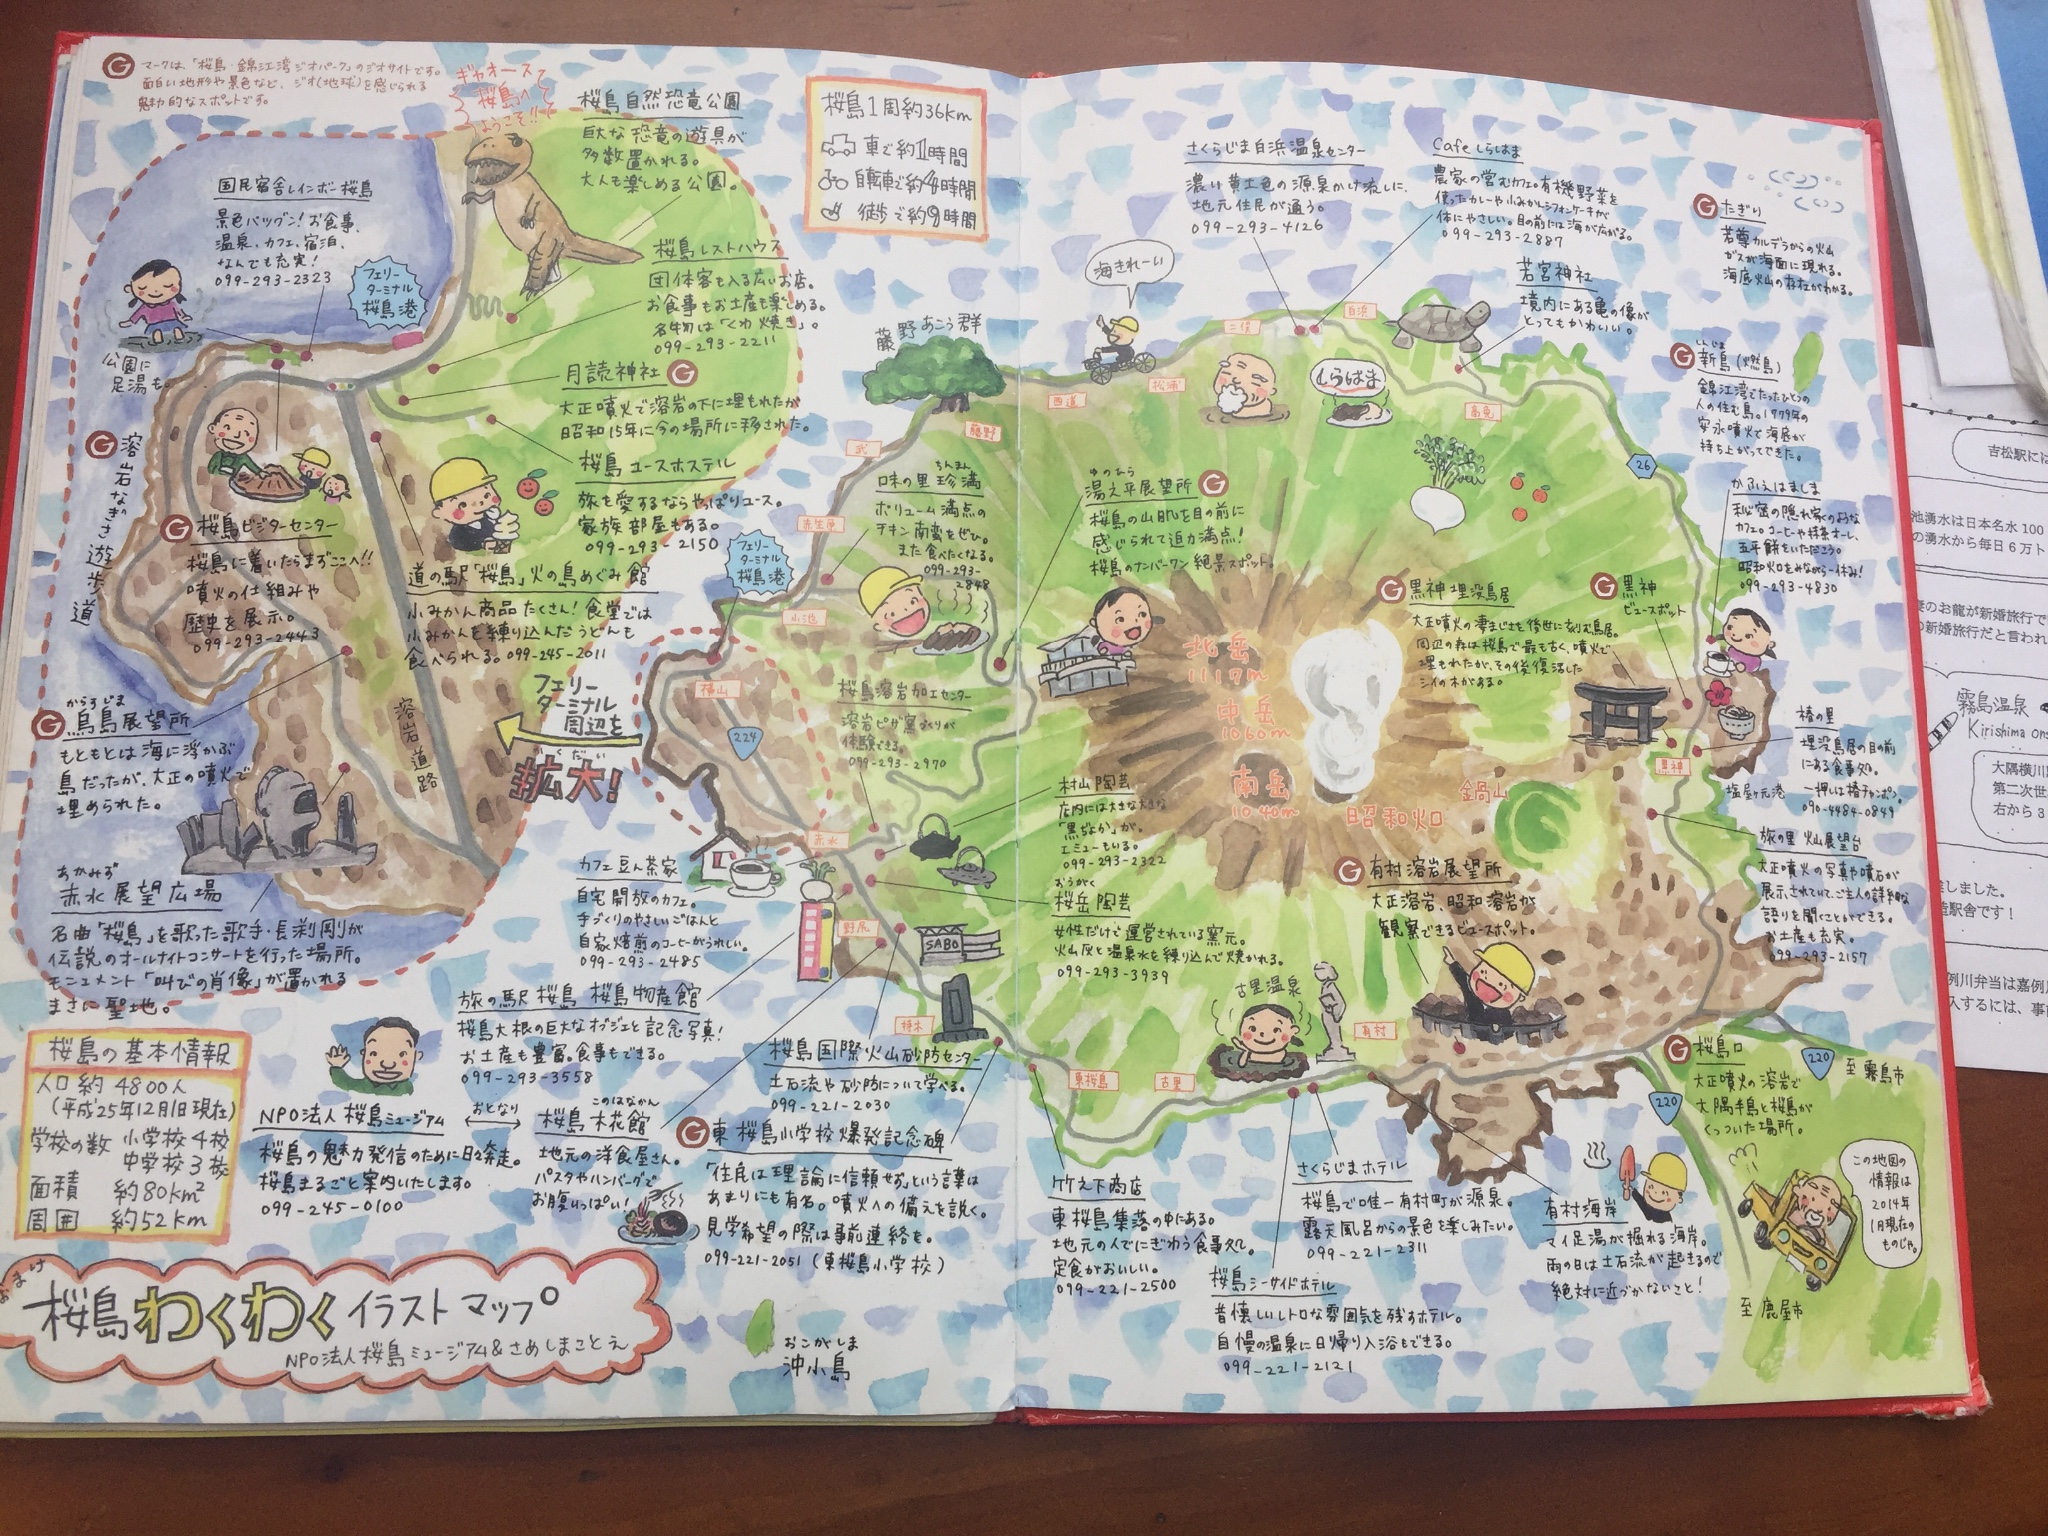 Ⓖマークは、「桜島・錦江湾ジオパーク」のジオサイトです。
面白い地形や景色など、ジオ(地球)を感じられる
魅力的なスポットです。
ギャオース
桜島へ
ようこそ!!
桜島自然恐竜公園
巨大な恐竜の遊具が
多数置かれる。
大人も楽しめる公園。
桜島1周約36km
車で約1時間
自転車で約4時間
徒歩で約9時間
国民宿舎レインボー桜島
景色バツグン!お食事、
温泉、カフェ、宿泊、
なんでも充実!
099-293-2323
フェリー
ターミナル
桜島港
公園に
足湯も。
桜島レストハウス
団体客も入る広いお店。
お食事もお土産も楽しめる。
名物は「くわ焼き」。
099-293-2211
月読神社 Ⓖ
大正噴火で溶岩の下に埋もれたが
昭和15年に今の場所に移された。
桜島ユースホステル
旅を愛するならやっぱりユース。
家族部屋もある。
099-293-2150
Ⓖ 溶岩なぎさ遊歩道
Ⓖ 桜島ビジターセンター
桜島に着いたらまずここへ!!
噴火の仕組みや
歴史を展示。
099-293-2443
道の駅「桜島」火の島めぐみ館
小みかん商品たくさん!食堂では
小みかんを練り込んだうどんも
食べられる。099-245-2011
からすじま
Ⓖ 烏島展望所
もともとは海に浮かぶ
島だったが、大正の噴火で
埋められた。
溶岩道路
フェリー
ターミナル
周辺を
かくだい
拡大!
あかみず
赤水展望広場
名曲「桜島」を歌った歌手・長渕剛が
伝説のオールナイトコンサートを行った場所。
モニュメント「叫びの肖像」が置かれる
まさに聖地。
桜島の基本情報
人口 約4800人
(平成25年12月1日現在)
学校の数 小学校4校
中学校3校
面積 約80km²
周囲 約52km
NPO法人桜島ミュージアム
桜島の魅力発信のために日々奔走。
桜島まるごと案内いたします。
099-245-0100
おとなり
このはなかん
桜島 木花館
地元の洋食屋さん。
パスタやハンバーグで
お腹いっぱい!
旅の駅 桜島 桜島物産館
桜島大根の巨大なオブジェと記念写真!
お土産も豊富。食事もできる。
099-293-3558
カフェ 豆ん茶家
自宅開放のカフェ。
手づくりのやさしいごはんと
自家焙煎のコーヒーがうれしい。
099-293-2485
桜島国際火山砂防センター
土石流や砂防について学べる。
099-221-2030
SABO
Ⓖ 東桜島小学校爆発記念碑
「住民は理論に信頼せず」という言葉は
あまりにも有名。噴火への備えを説く。
見学希望の際は事前連絡を。
099-221-2051(東桜島小学校)
おまけ
桜島わくわくイラストマップ
NPO法人桜島ミュージアム&さめしまことえ
おこがしま
沖小島
藤野あこう群
藤野
武
赤生原
小池
フェリー
ターミナル
桜島港
横山
224
赤水
野尻
持木
ちんまん
味の里 珍満
ボリューム満点の
チキン南蛮をぜひ。
また食べたくなる。
099-293-
2848
桜島溶岩加工センター
溶岩ピザ窯づくりが
体験できる。
099-293-2970
海きれーい
西道
松浦
二俣
白浜
高免
しらはま
さくらじま白浜温泉センター
濃い黄土色の源泉かけ流しに、
地元住民が通う。
099-293-4126
Cafe しらはま
農家の営むカフェ。有機野菜を
使ったカレーや小みかんシフォンケーキが
体にやさしい。目の前には海が広がる。
099-293-2887
若宮神社
境内にある亀の像が
とってもかわいい。
Ⓖ たぎり
若尊カルデラからの火山
ガスが海面に現れる。
海底火山の存在がわかる。
しんじま
Ⓖ 新島(燃島)
錦江湾でたったひとつの
人の住む島。1779年の
安永噴火で海底が
持ち上がってできた。
26
かふぇはましま
秘密の隠れ家のような
カフェ。コーヒーや抹茶オーレ、
五平餅をいただこう。
昭和火口をみながら一休み!
099-293-4830
ゆのひら
湯之平展望所 Ⓖ
桜島の山肌を目の前に
感じられて迫力満点!
桜島のナンバーワン絶景スポット。
Ⓖ 黒神埋没鳥居
大正噴火の凄まじさを後世に刻む鳥居。
周辺の森は桜島で最も古く、噴火で
埋もれたが、その後復活した
シイの木がある。
Ⓖ 黒神
ビュースポット
北岳
1117m
中岳
1060m
南岳
1040m
昭和火口
鍋山
黒神
塩屋ヶ元港
椿の里
埋没鳥居の目の前
にある食事処。
一押しは椿チャンポン。
090-4484-0849
旅の里 火山展望台
大正噴火の写真や噴石が
展示されていて、ご主人の詳細な
語りを聞くことができる。
お土産も充実。
099-293-2157
村山陶芸
店内には大きな大きな
「黒ぢょか」が。
エミューもいる。
099-293-2322
おうがく
桜岳陶芸
女性だけで運営されている窯元。
火山灰と温泉水を練り込んで焼かれる。
099-293-3939
Ⓖ 有村溶岩展望所
大正溶岩、昭和溶岩が
観察できるビュースポット。
古里温泉
有村
東桜島
古里
竹之下商店
東桜島集落の中にある。
地元の人でにぎわう食事処。
定食がおいしい。
099-221-2500
さくらじまホテル
桜島で唯一有村町が源泉。
露天風呂からの景色を楽しみたい。
099-221-2311
桜島シーサイドホテル
昔懐しいレトロな雰囲気を残すホテル。
自慢の温泉に日帰り入浴もできる。
099-221-2121
有村海岸
マイ足湯が掘れる海岸。
雨の日は土石流が起きるので
絶対に近づかないこと!
Ⓖ 桜島口
大正噴火の溶岩で
大隅半島と桜島が
くっついた場所。
220
至 霧島市
220
至 鹿屋市
この地図の
情報は
2014年
1月現在の
ものじゃ。
吉松駅には
池湧水は日本名水100
の湧水から毎日6万ト
のお龍が新婚旅行で
の新婚旅行だと言われ
霧島温泉
Kirishima ons
大隅横川
第二次世
右から3
しました。
駅舎です!
例川弁当は嘉例
入するには、事